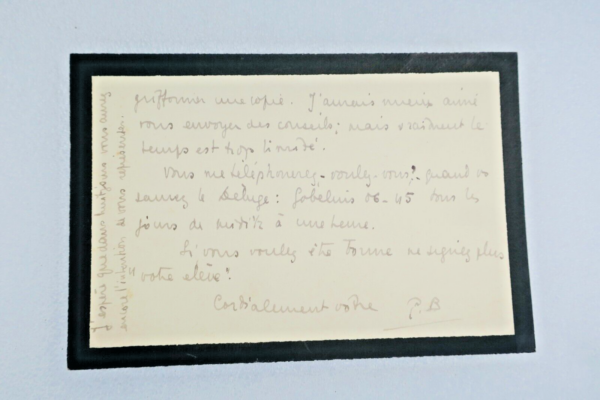 griffonner une copie. J'aurais mieux aimé
vous envoyer des conseils; mais vraiment le
temps est trop limité.
Vous me téléphonerez, voulez-vous? quand vs
saurez le : Gobelins 06-45 tous les
jours de midi ½ à une heure.
Si vous voulez être bonne ne signez plus
votre élève!
Cordialement votre P.B
J'espère que dans huit jours vous aurez
encore l'intention de vous représenter.